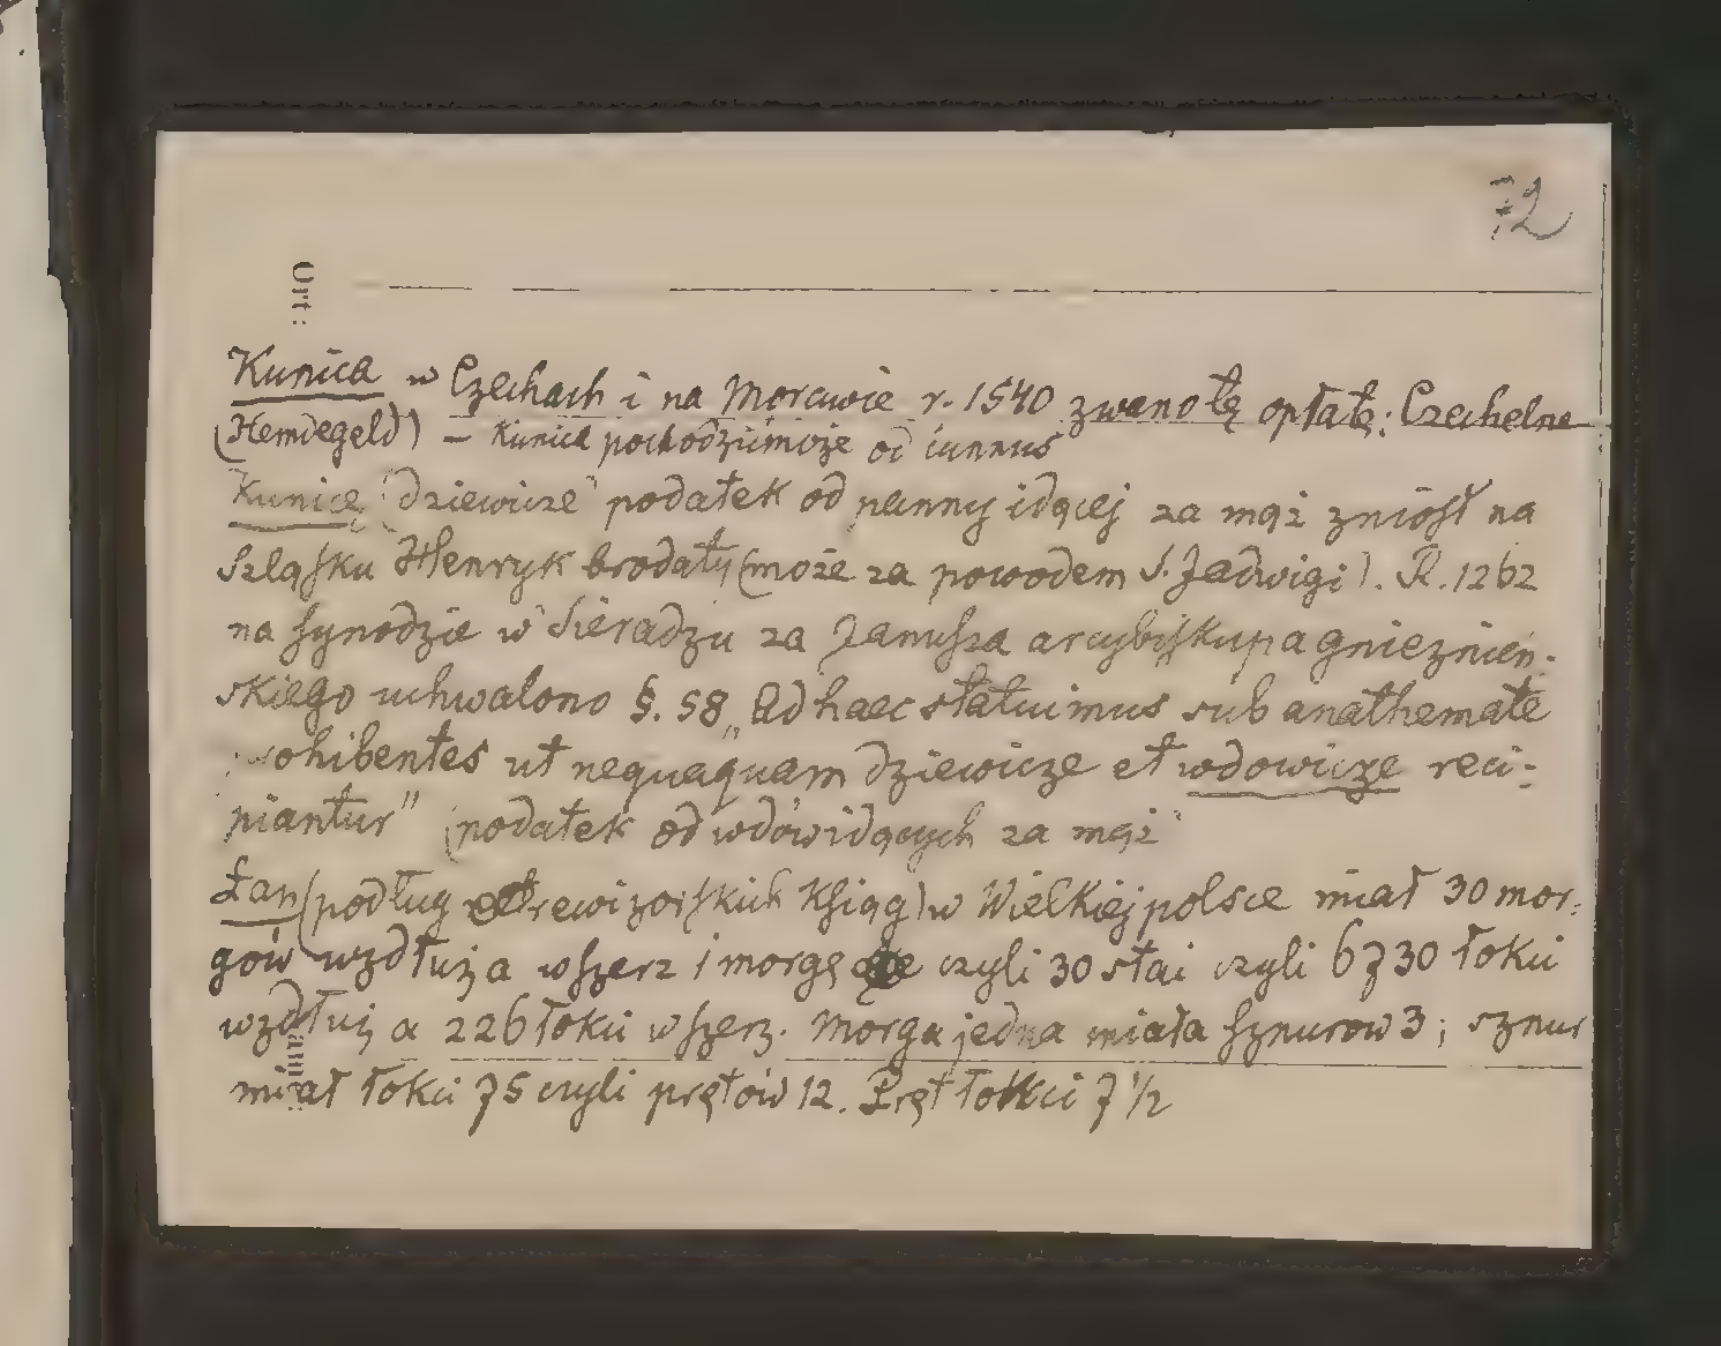 72
Ort:
Kunica w Czechach i na Morawie r. 1540 zwano tę opłatę: Czechelne
(Hemdegeld) – Kunica pochodzić może od cunnus
Kunicę (dziewicze) podatek od panny idącej za mąż zniósł na
Szląsku Henryk brodaty (może za powodem S. Jadwigi). R. 1262
na synodzie w Sieradzu za Janusza arcybiskupa gnieznień-
skiego uchwalono §. 58 „Ad haec statuimus sub anathemate
prohibentes ut nequaquam dziewicze et wdowicze reci-
piantur" (podatek od wdów idących za mąż)
Łan (podług rewizorskich ksiąg) w Wielkiejpolsce miał 30 mor-
gów wzdłuż a wszerz 1 morgę czyli 30 stai czyli 6730 łokci
wzdłuż a 226 łokci wszerz. Morga jedna miała sznurow 3; sznur
miał łokci 75 czyli prętów 12. Pręt łokci 7 1/2